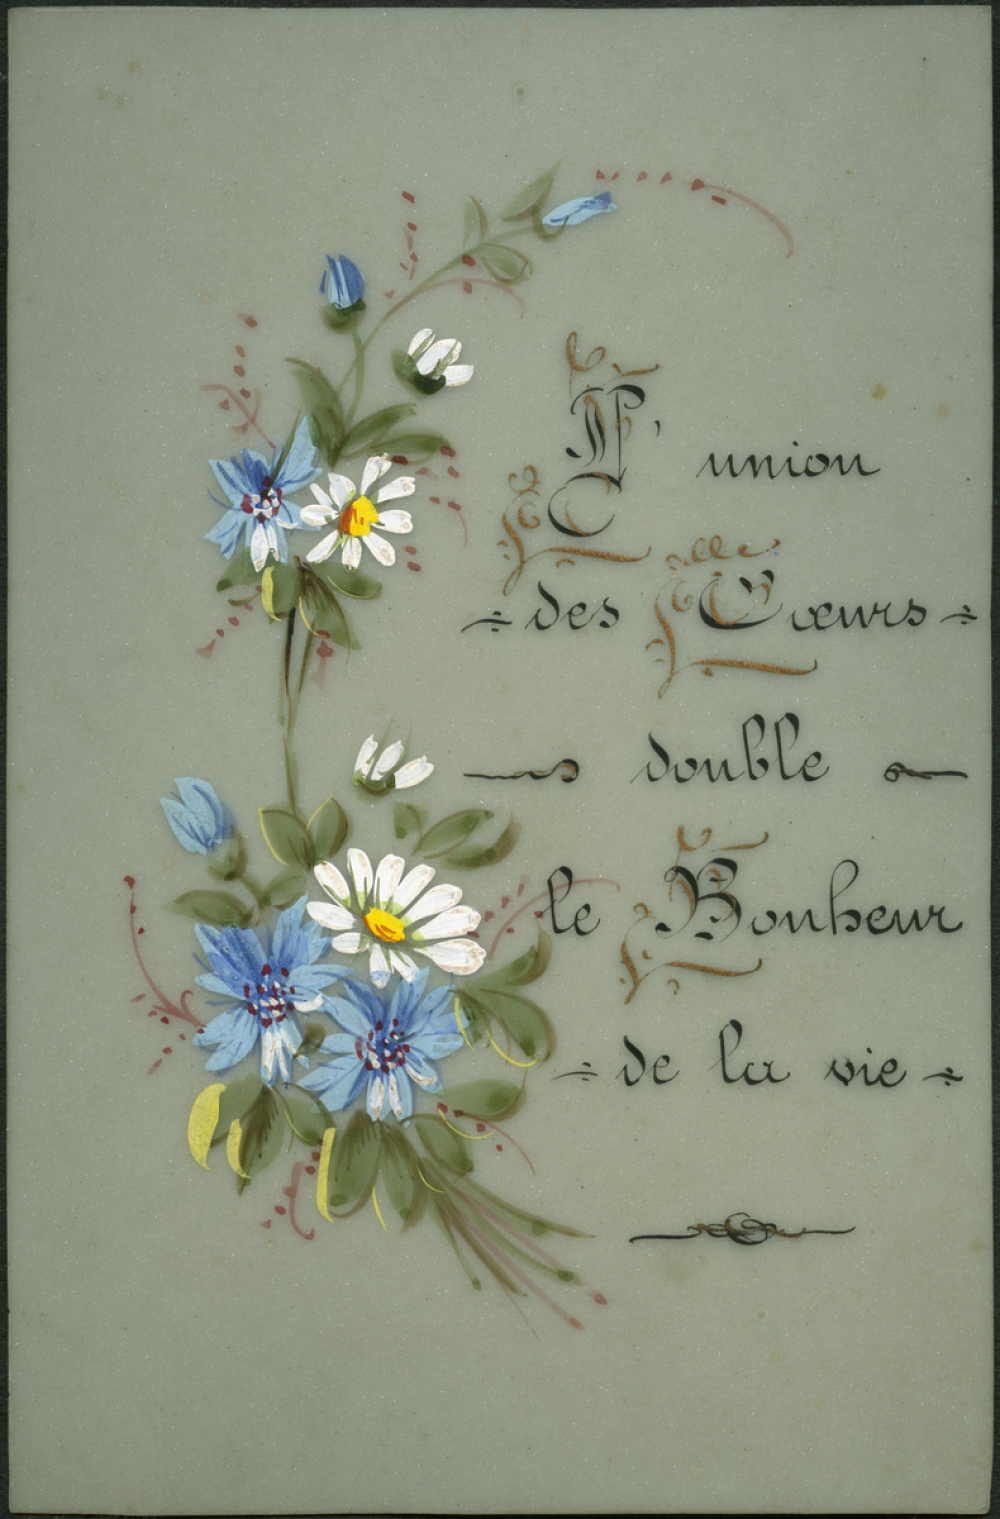 L'union
des Cœurs
double
le Bonheur
de la vie